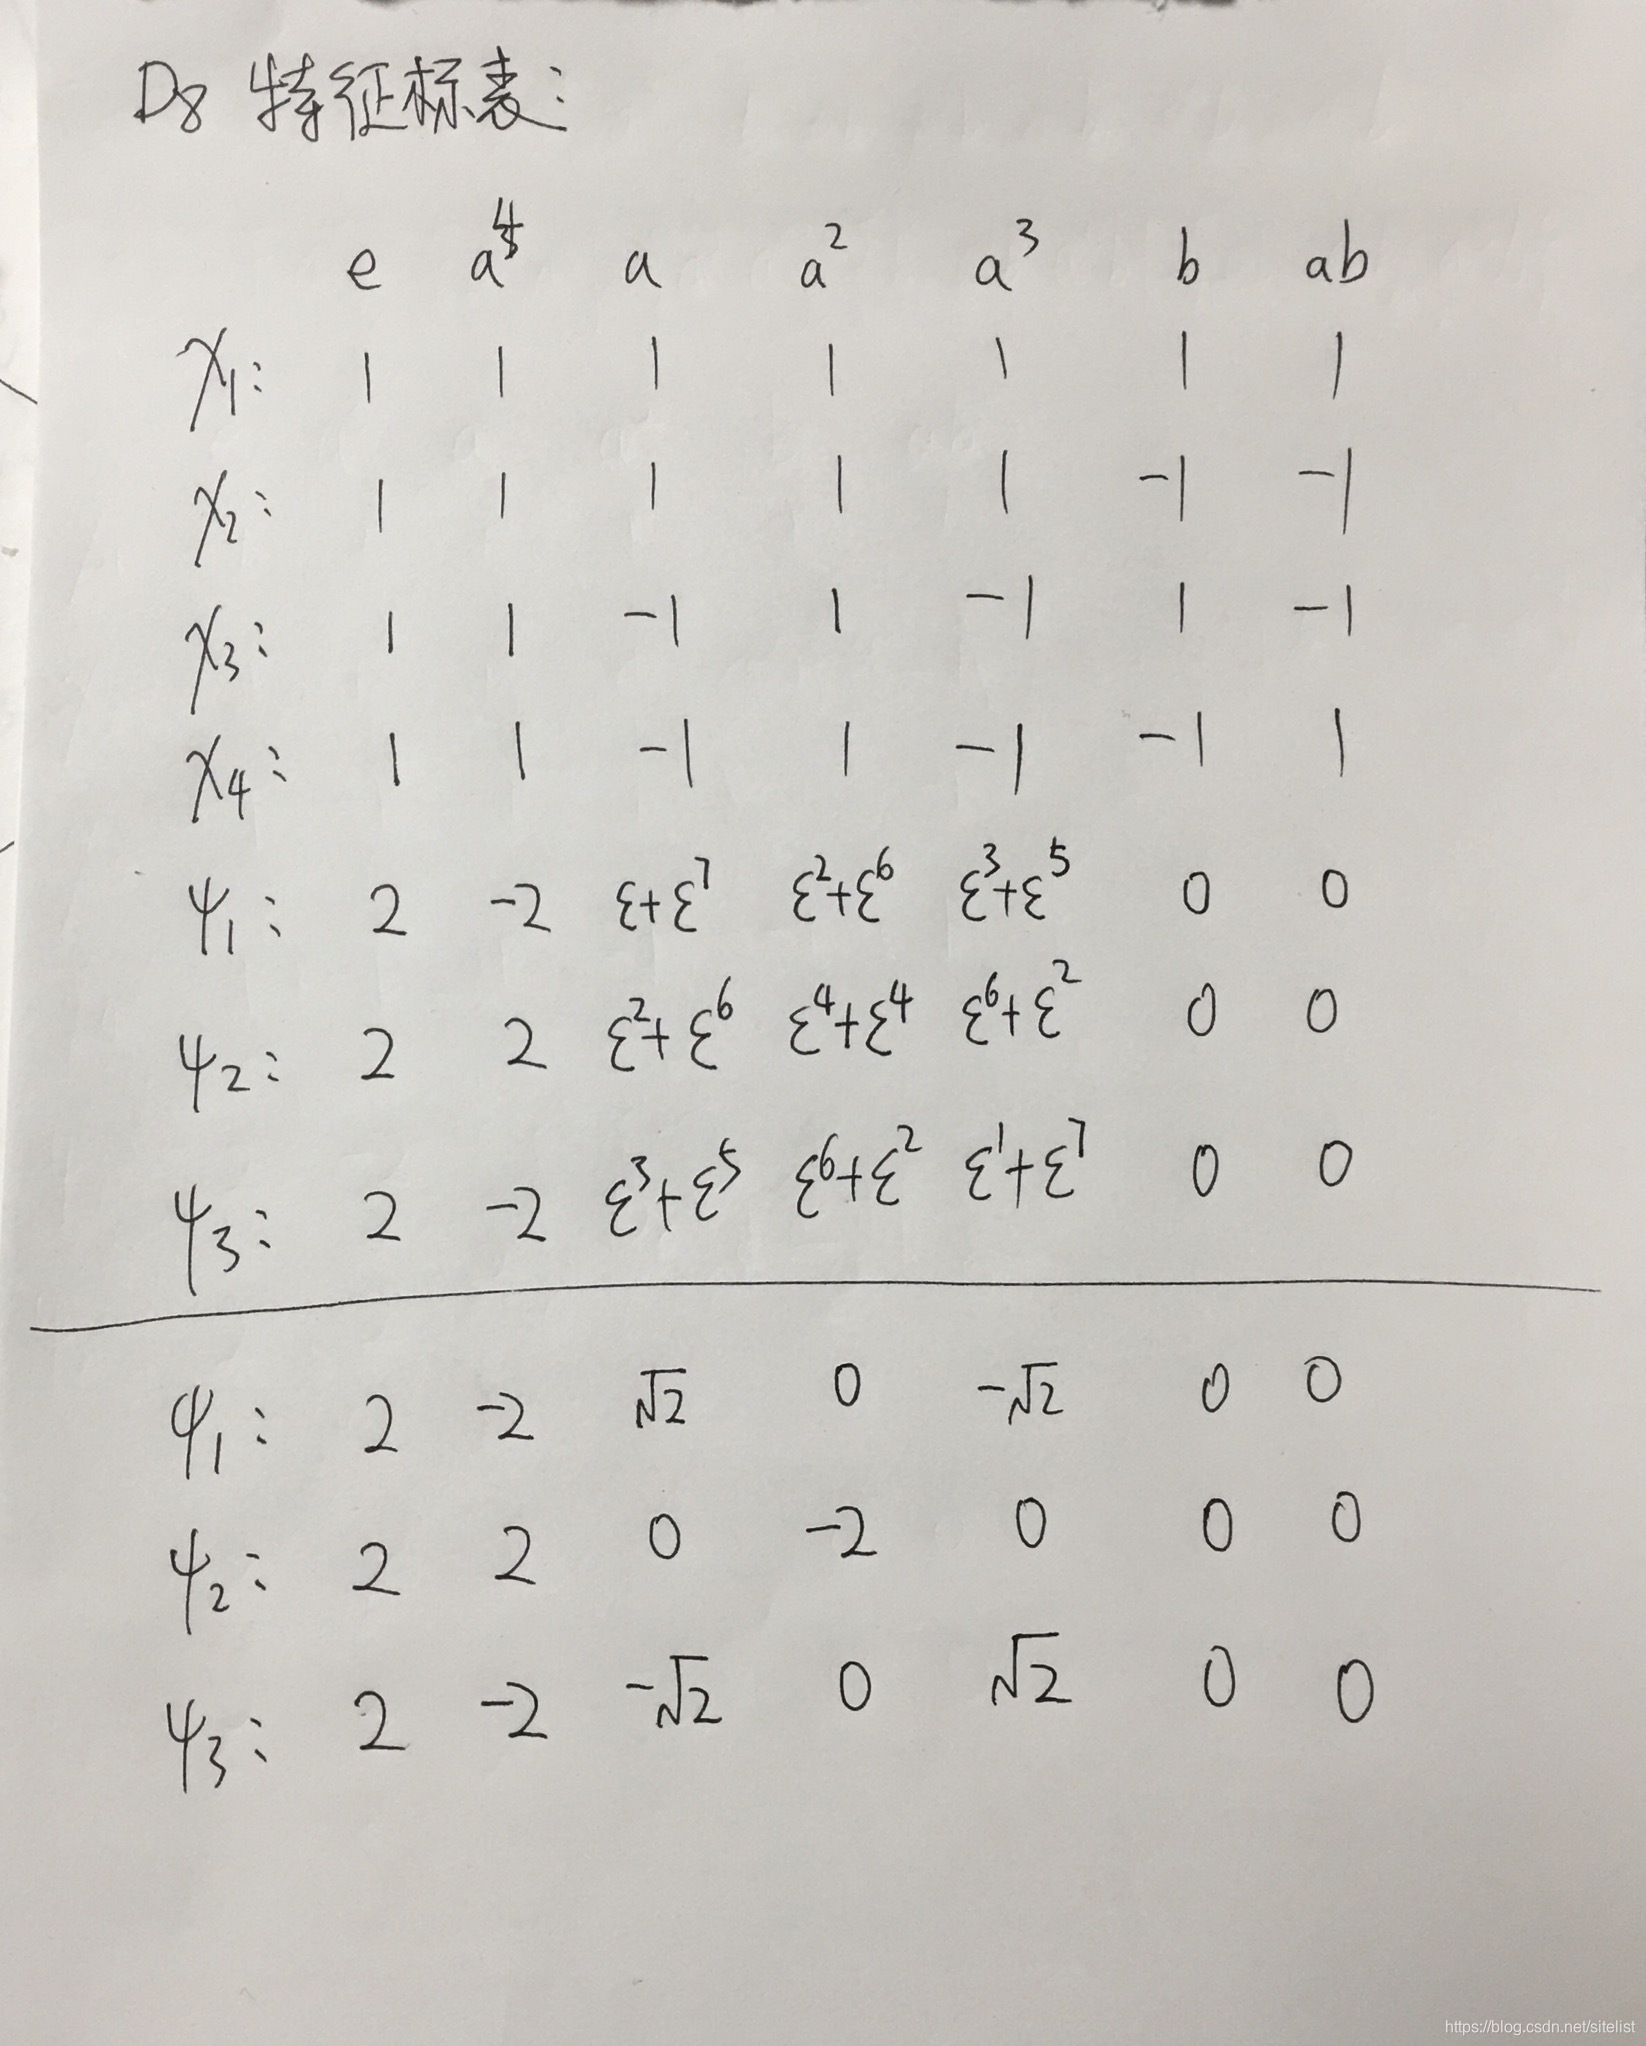 D8 特征标表:
e a⁴ a a² a³ b ab
χ₁: 1 1 1 1 1 1 1
χ₂: 1 1 1 1 1 -1 -1
χ₃: 1 1 -1 1 -1 1 -1
χ₄: 1 1 -1 1 -1 -1 1
ψ₁: 2 -2 ε+ε⁷ ε²+ε⁶ ε³+ε⁵ 0 0
ψ₂: 2 2 ε²+ε⁶ ε⁴+ε⁴ ε⁶+ε² 0 0
ψ₃: 2 -2 ε³+ε⁵ ε⁶+ε² ε¹+ε⁷ 0 0
ψ₁: 2 -2 √2 0 -√2 0 0
ψ₂: 2 2 0 -2 0 0 0
ψ₃: 2 -2 -√2 0 √2 0 0
https://blog.csdn.net/sitelist